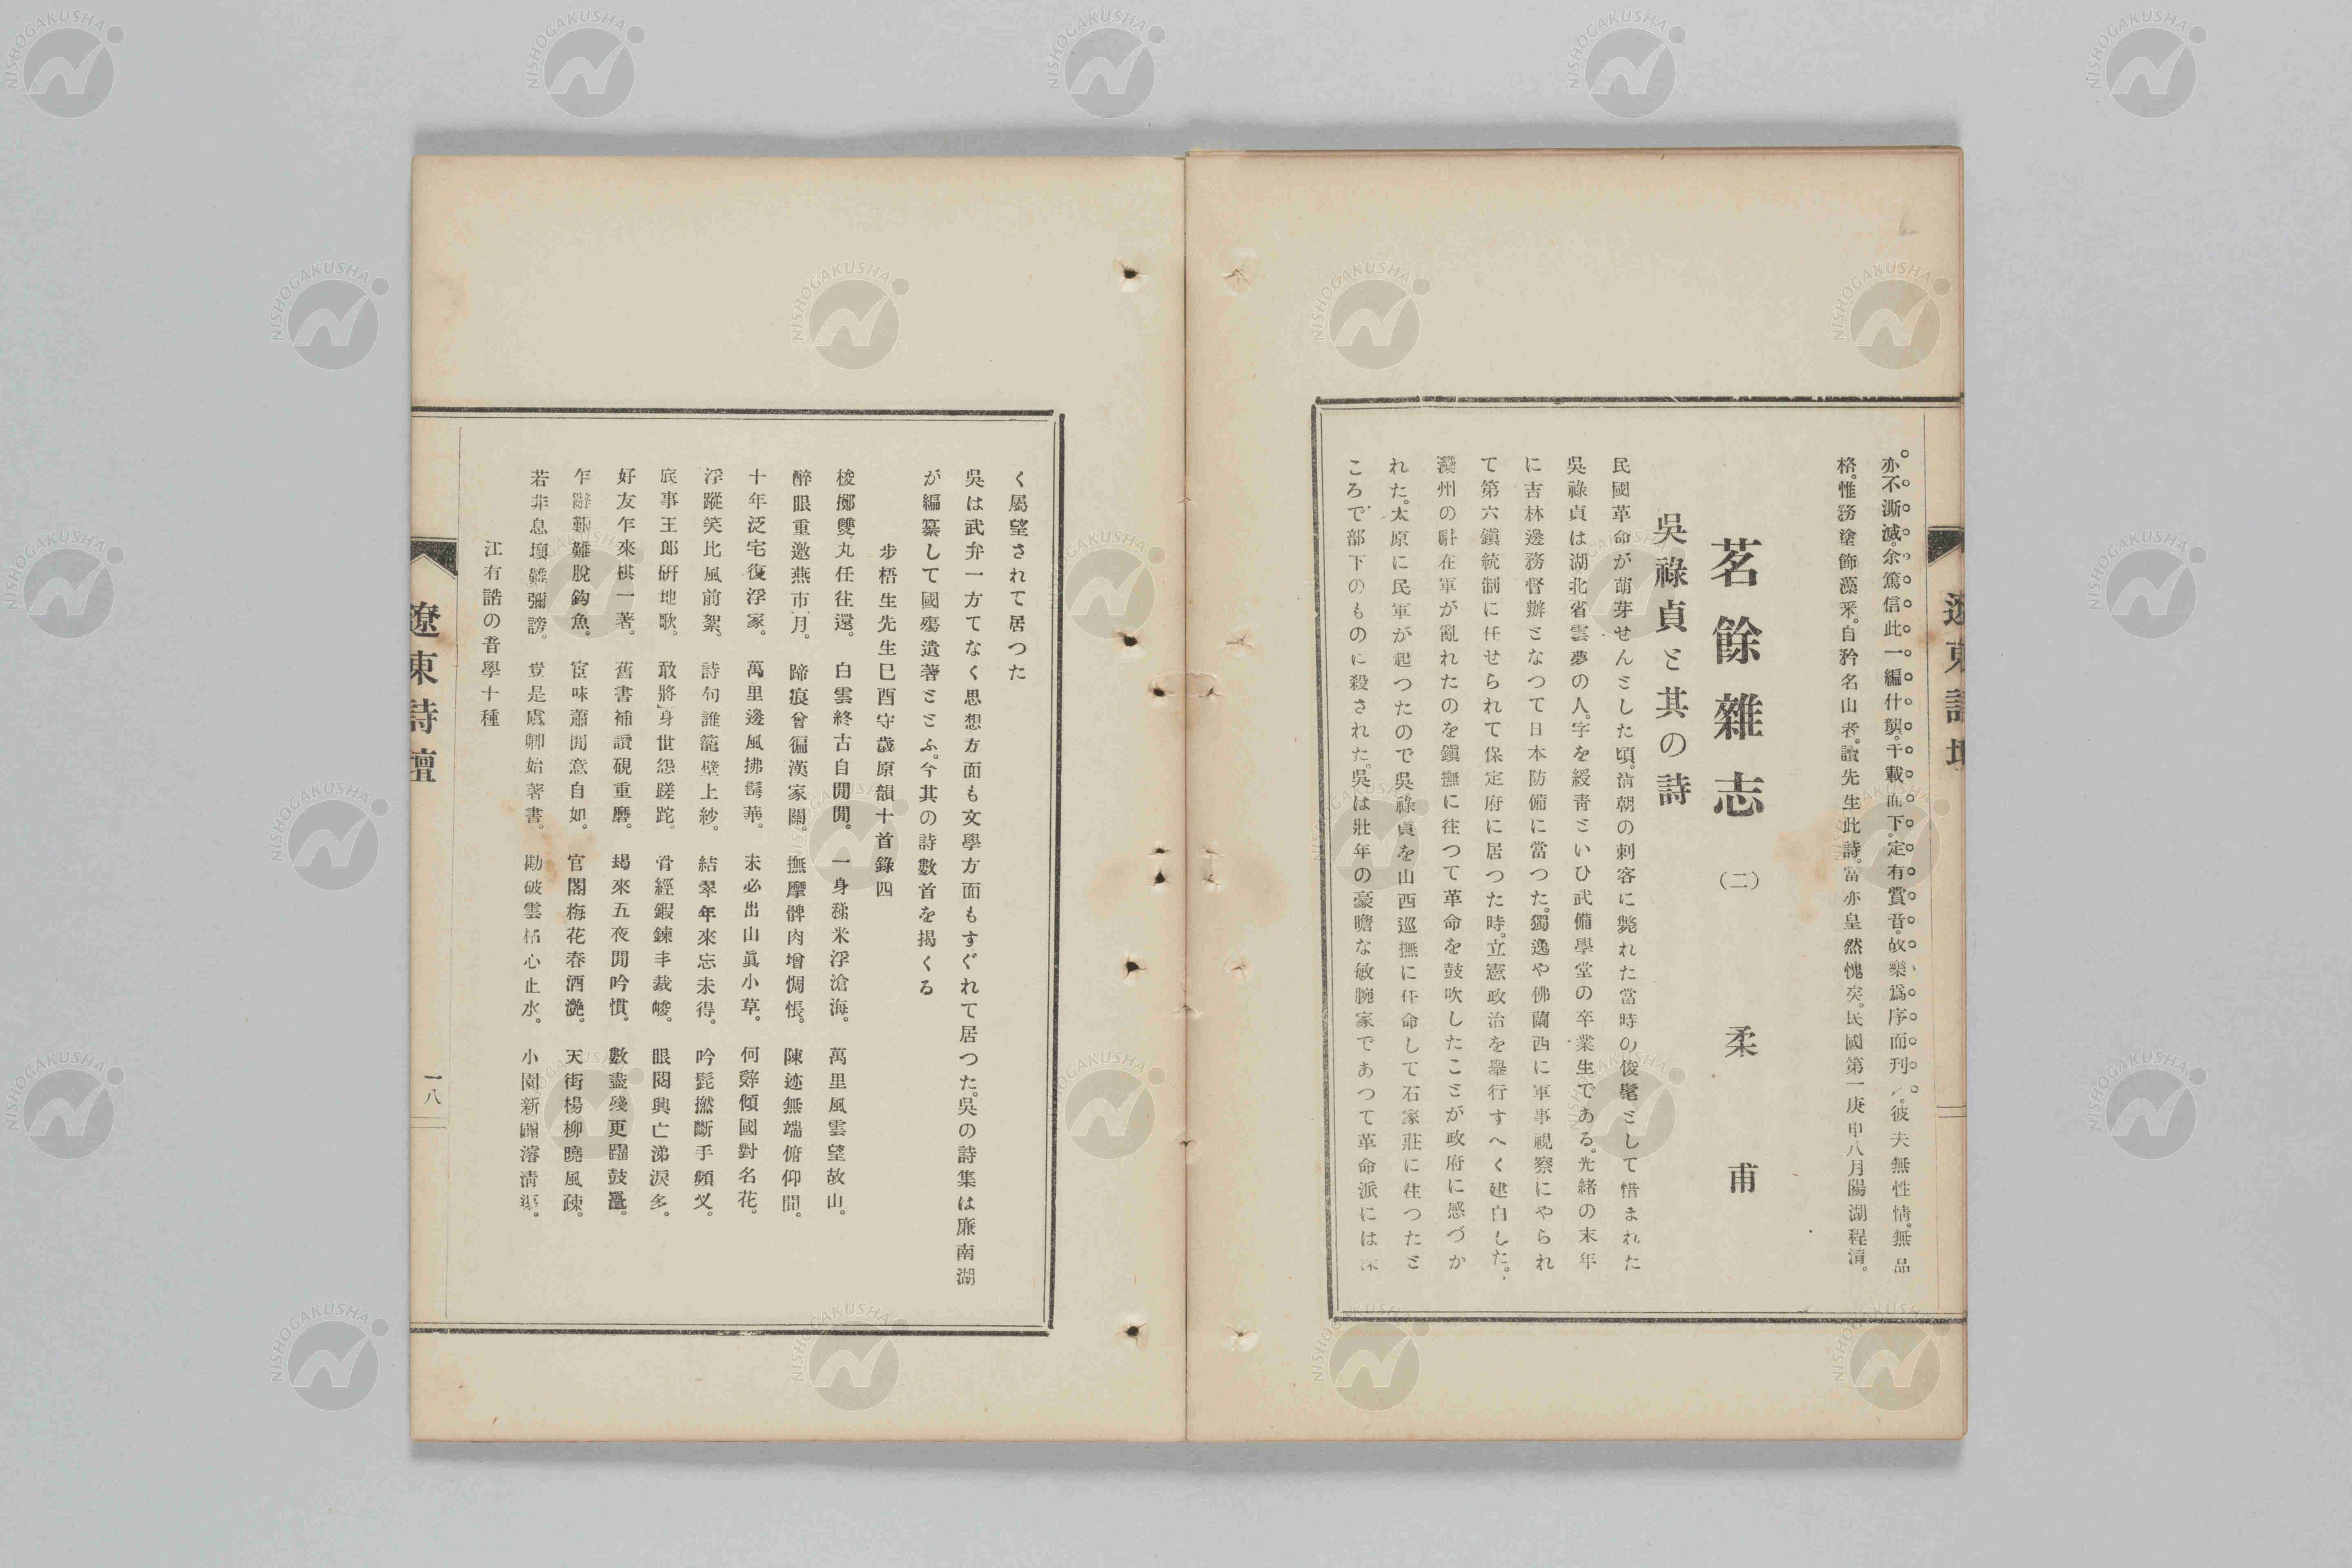 亦不澌滅。余篤信此一編什襲。千載而下。定有賞音。故樂爲序而刊。彼夫無性情。無品
格。惟務塗飾藻釆。自矜名山者。讀先生此詩。當亦皇然愧矣。民國第一庚申八月陽湖程淯。
茗餘雜志 (二) 柔甫
吳祿貞と其の詩
民國革命が萌芽せんとした頃。淸朝の刺客に斃れた當時の俊髦として惜まれた
吳祿貞は湖北省雲夢の人。字を綬靑といひ武備學堂の卒業生である。光緒の末年
に吉林邊務督辦となつて日本防備に當つた。獨逸や佛蘭西に軍事視察にやられ
て第六鎭統制に任せられて保定府に居つた時。立憲政治を擧行すへく建白した。
灤州の駐在軍が亂れたのを鎭撫に往つて革命を鼓吹したことが政府に感づか
れた。太原に民軍が起つたので吳祿貞を山西巡撫に任命して石家莊に往つたと
ころで部下のものに殺された。吳は壯年の豪膽な敏腕家であつて革命派には深
く屬望されて居つた
吳は武弁一方てなく思想方面も文學方面もすぐれて居つた。吳の詩集は廉南湖
が編纂して國殤遺著ととふ。今其の詩數首を揭くる
步梧生先生巳酉守歲原韻十首錄四
梭擲雙丸任往還。白雲終古自閒閒。一身稊米浮滄海。萬里風雲望故山。
醉眼重邀燕市月。蹄痕曾徧漢家關。撫摩髀肉增惆悵。陳迹無端俯仰間。
十年泛宅復浮家。萬里邊風拂鬢華。未必出山眞小草。何辭傾國對名花。
浮蹤笑比風前絮。詩句誰籠壁上紗。結翠年來忘未得。吟髭撚斷手頻叉。
底事王郎硏地歌。敢將身世怨蹉跎。骨經鍜鍊丰裁峻。眼閱興亡涕淚多。
好友乍來棋一著。舊書補讀硯重磨。朅來五夜閒吟慣。數盡殘更躍鼓鼉。
乍辭艱難脫鈎魚。宦味蕭閒意自如。官閣梅花春酒灔。天街楊柳曉風疎。
若非息壤雖彌謗。豈是虞卿始著書。勘破雲栝心止水。小園新闢濬淸渠。
江有誥の音學十種
遼東詩壇
一八